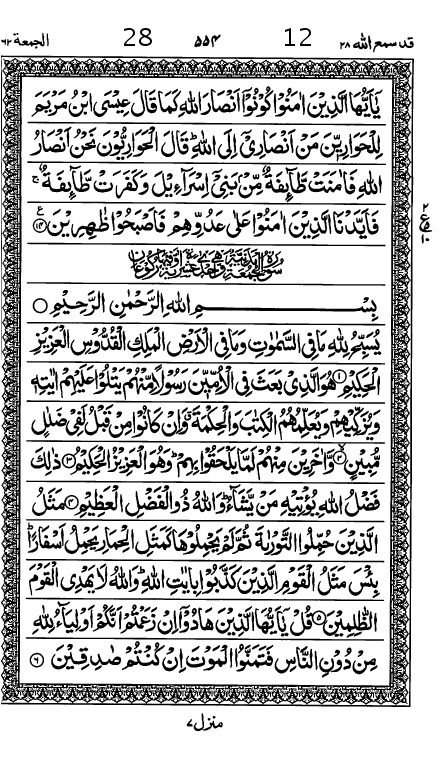 قد سمع الله ۲۸ 12 ۵۵۴ 28 الجمعة ۶۲
يٰۤاَيُّهَا الَّذِيْنَ اٰمَنُوْا كُوْنُوْۤا اَنْصَارَ اللّٰهِ كَمَا قَالَ عِيْسَى ابْنُ مَرْيَمَ
لِلْحَوَارِيّٖنَ مَنْ اَنْصَارِيْۤ اِلَى اللّٰهِؕ قَالَ الْحَوَارِيُّوْنَ نَحْنُ اَنْصَارُ
اللّٰهِ فَاٰمَنَتْ طَّآىِٕفَةٌ مِّنْۢ بَنِيْۤ اِسْرَآءِيْلَ وَكَفَرَتْ طَّآىِٕفَةٌۚ
فَاَيَّدْنَا الَّذِيْنَ اٰمَنُوْا عَلٰى عَدُوِّهِمْ فَاَصْبَحُوْا ظٰهِرِيْنَ ﴿۱۴﴾
بِسْمِ اللّٰهِ الرَّحْمٰنِ الرَّحِيْمِ
يُسَبِّحُ لِلّٰهِ مَا فِي السَّمٰوٰتِ وَمَا فِي الْاَرْضِ الْمَلِكِ الْقُدُّوْسِ الْعَزِيْزِ
الْحَكِيْمِ ﴿۱﴾ هُوَ الَّذِيْ بَعَثَ فِي الْاُمِّيّٖنَ رَسُوْلًا مِّنْهُمْ يَتْلُوْا عَلَيْهِمْ اٰيٰتِهٖ
وَيُزَكِّيْهِمْ وَيُعَلِّمُهُمُ الْكِتٰبَ وَالْحِكْمَةَۗ وَاِنْ كَانُوْا مِنْ قَبْلُ لَفِيْ ضَلٰلٍ
مُّبِيْنٍ ﴿۲﴾ وَّاٰخَرِيْنَ مِنْهُمْ لَمَّا يَلْحَقُوْا بِهِمْؕ وَهُوَ الْعَزِيْزُ الْحَكِيْمُ ﴿۳﴾ ذٰلِكَ
فَضْلُ اللّٰهِ يُؤْتِيْهِ مَنْ يَّشَآءُؕ وَاللّٰهُ ذُو الْفَضْلِ الْعَظِيْمِ ﴿۴﴾ مَثَلُ
الَّذِيْنَ حُمِّلُوا التَّوْرٰىةَ ثُمَّ لَمْ يَحْمِلُوْهَا كَمَثَلِ الْحِمَارِ يَحْمِلُ اَسْفَارًاؕ
بِئْسَ مَثَلُ الْقَوْمِ الَّذِيْنَ كَذَّبُوْا بِاٰيٰتِ اللّٰهِؕ وَاللّٰهُ لَا يَهْدِي الْقَوْمَ
الظّٰلِمِيْنَ ﴿۵﴾ قُلْ يٰۤاَيُّهَا الَّذِيْنَ هَادُوْۤا اِنْ زَعَمْتُمْ اَنَّكُمْ اَوْلِيَآءُ لِلّٰهِ
مِنْ دُوْنِ النَّاسِ فَتَمَنَّوُا الْمَوْتَ اِنْ كُنْتُمْ صٰدِقِيْنَ ﴿۶﴾
۲
ع
۱۰
منزل ۷